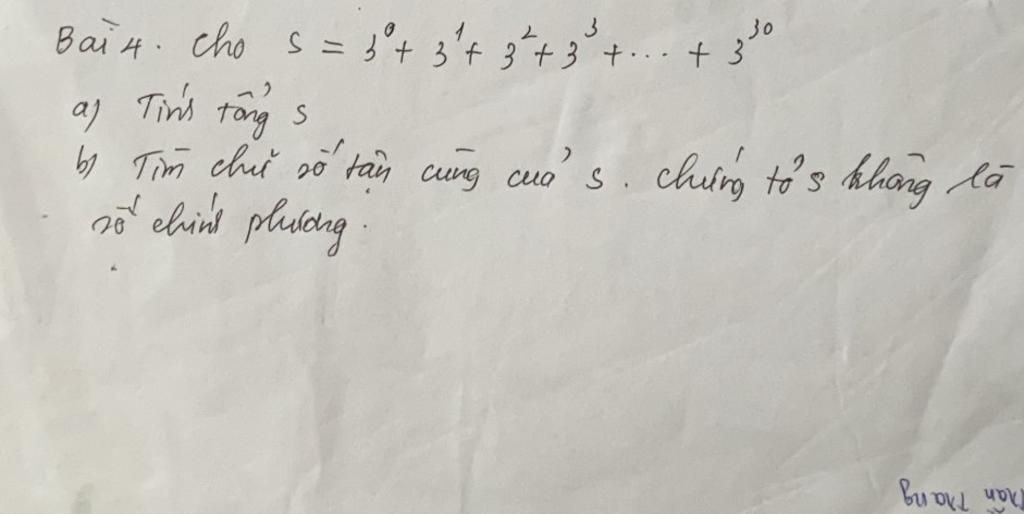 Bài 4. Cho S = 3⁰ + 3¹ + 3² + 3³ + ... + 3³⁰
a) Tính tổng S
b) Tìm chữ số tận cùng của S. Chứng tỏ S không là
số chính phương.
Thang